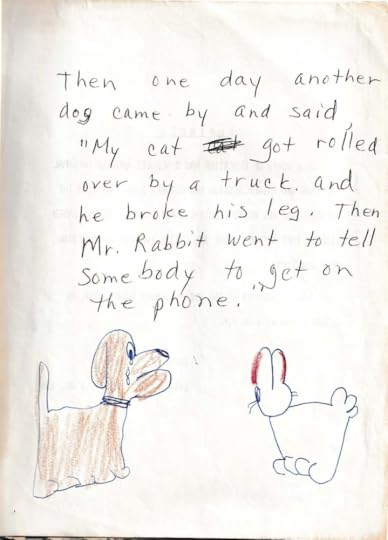 Then one day another
dog came by and said,
"My cat got rolled
over by a truck. and
he broke his leg. Then
Mr. Rabbit went to tell
Somebody to get on
the phone.